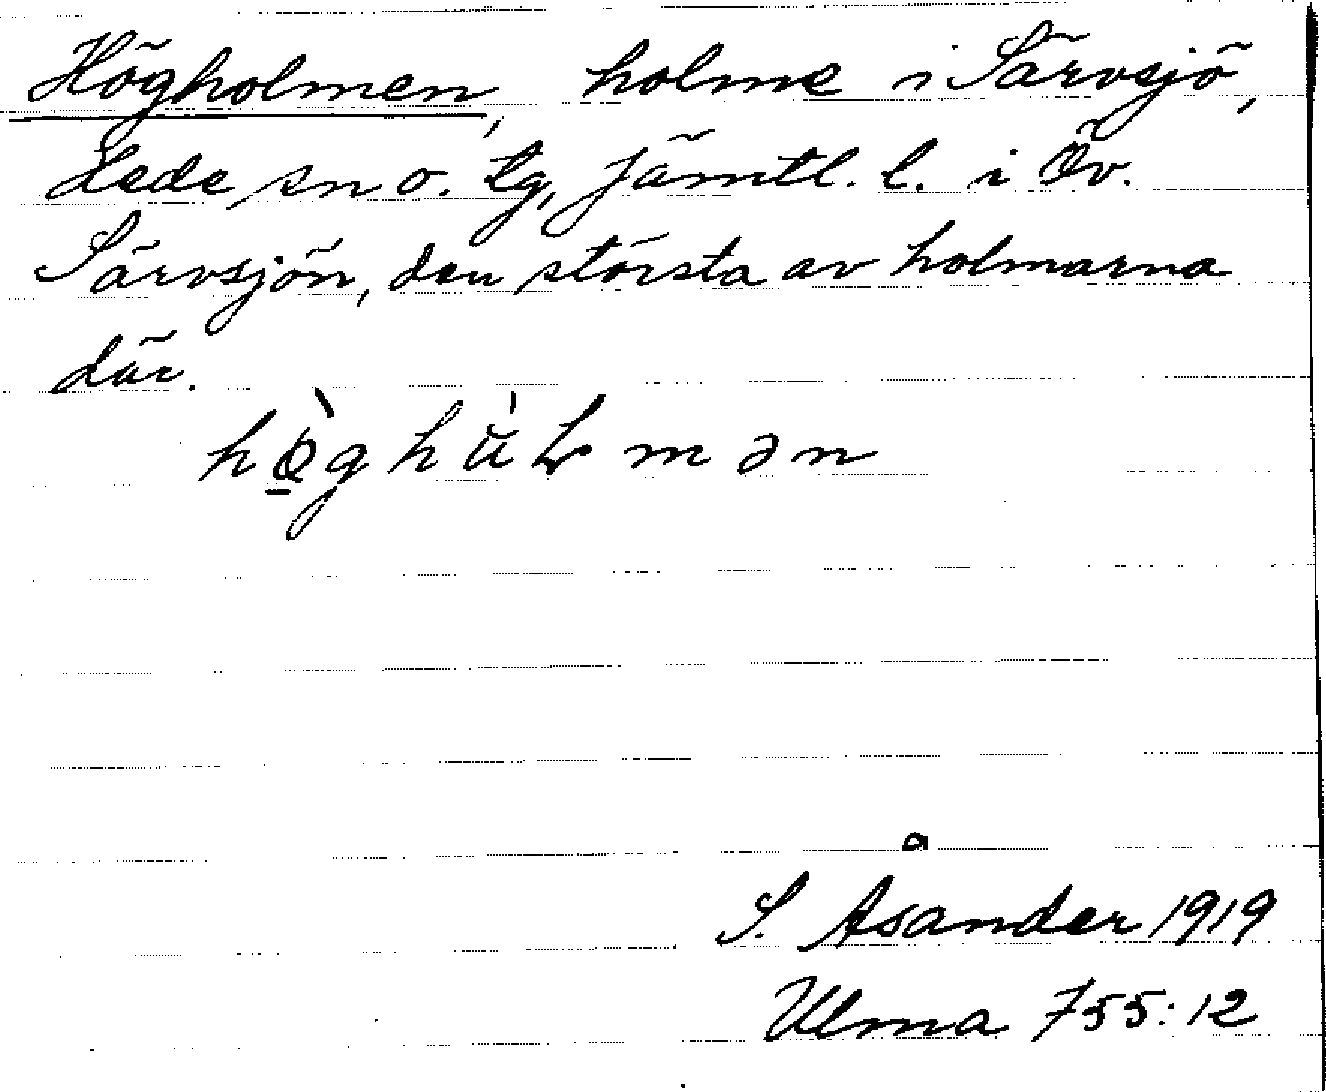 Högholmen, holme i Särvsjö,
Hede sn o. tg, Jämtl. l. i Öv.
Särvsjön, den största av holmarna
där.
hø̱̀ghùɫmən
S. Åsander 1919
Ulma 755:12